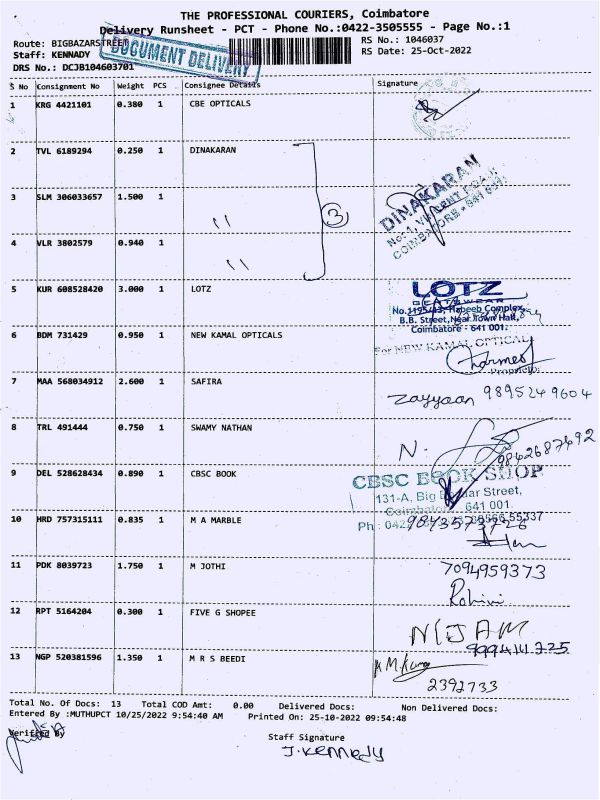 THE PROFESSIONAL COURIERS, Coimbatore
Delivery Runsheet - PCT - Phone No.:0422-3505555 - Page No.:1
Route: BIGBAZARSTREET
RS No.: 1046037
Staff: KENNADY
RS Date: 25-Oct-2022
DOCUMENT DELIVERY
DRS No.: DCJB104603701
S No Consignment No Weight PCS Consignee Details Signature
1 KRG 4421101 0.380 1 CBE OPTICALS
2 TVL 6189294 0.250 1 DINAKARAN
3 SLM 306033657 1.500 1 "
3
DINAKARAN
4 VLR 3802579 0.940 1 "
5 KUR 608528420 3.000 1 LOTZ
LOTZ
No.1195/13, Habeeb Complex,
B.B. Street, Near Town Hall,
Coimbatore - 641 001.
6 BDM 731429 0.950 1 NEW KAMAL OPTICALS
For NEW KAMAL OPTICAL
Proprietor
7 MAA 568034912 2.600 1 SAFIRA
Zayyaan 9895249604
8 TRL 491444 0.750 1 SWAMY NATHAN
N.
9842687492
9 DEL 528628434 0.890 1 CBSC BOOK
CBSC BOOK SHOP
131-A, Big Bazaar Street,
Coimbatore 641 001.
10 HRD 757315111 0.835 1 M A MARBLE
Ph : 0422
11 PDK 8039723 1.750 1 M JOTHI
7094959373
Rohini
12 RPT 5164204 0.300 1 FIVE G SHOPEE
NIJAM
13 NGP 520381596 1.350 1 M R S BEEDI
2392733
Total No. Of Docs: 13 Total COD Amt: 0.00 Delivered Docs: Non Delivered Docs:
Entered By :MUTHUPCT 10/25/2022 9:54:40 AM Printed On: 25-10-2022 09:54:48
Verified By
Staff Signature
J. Kennedy